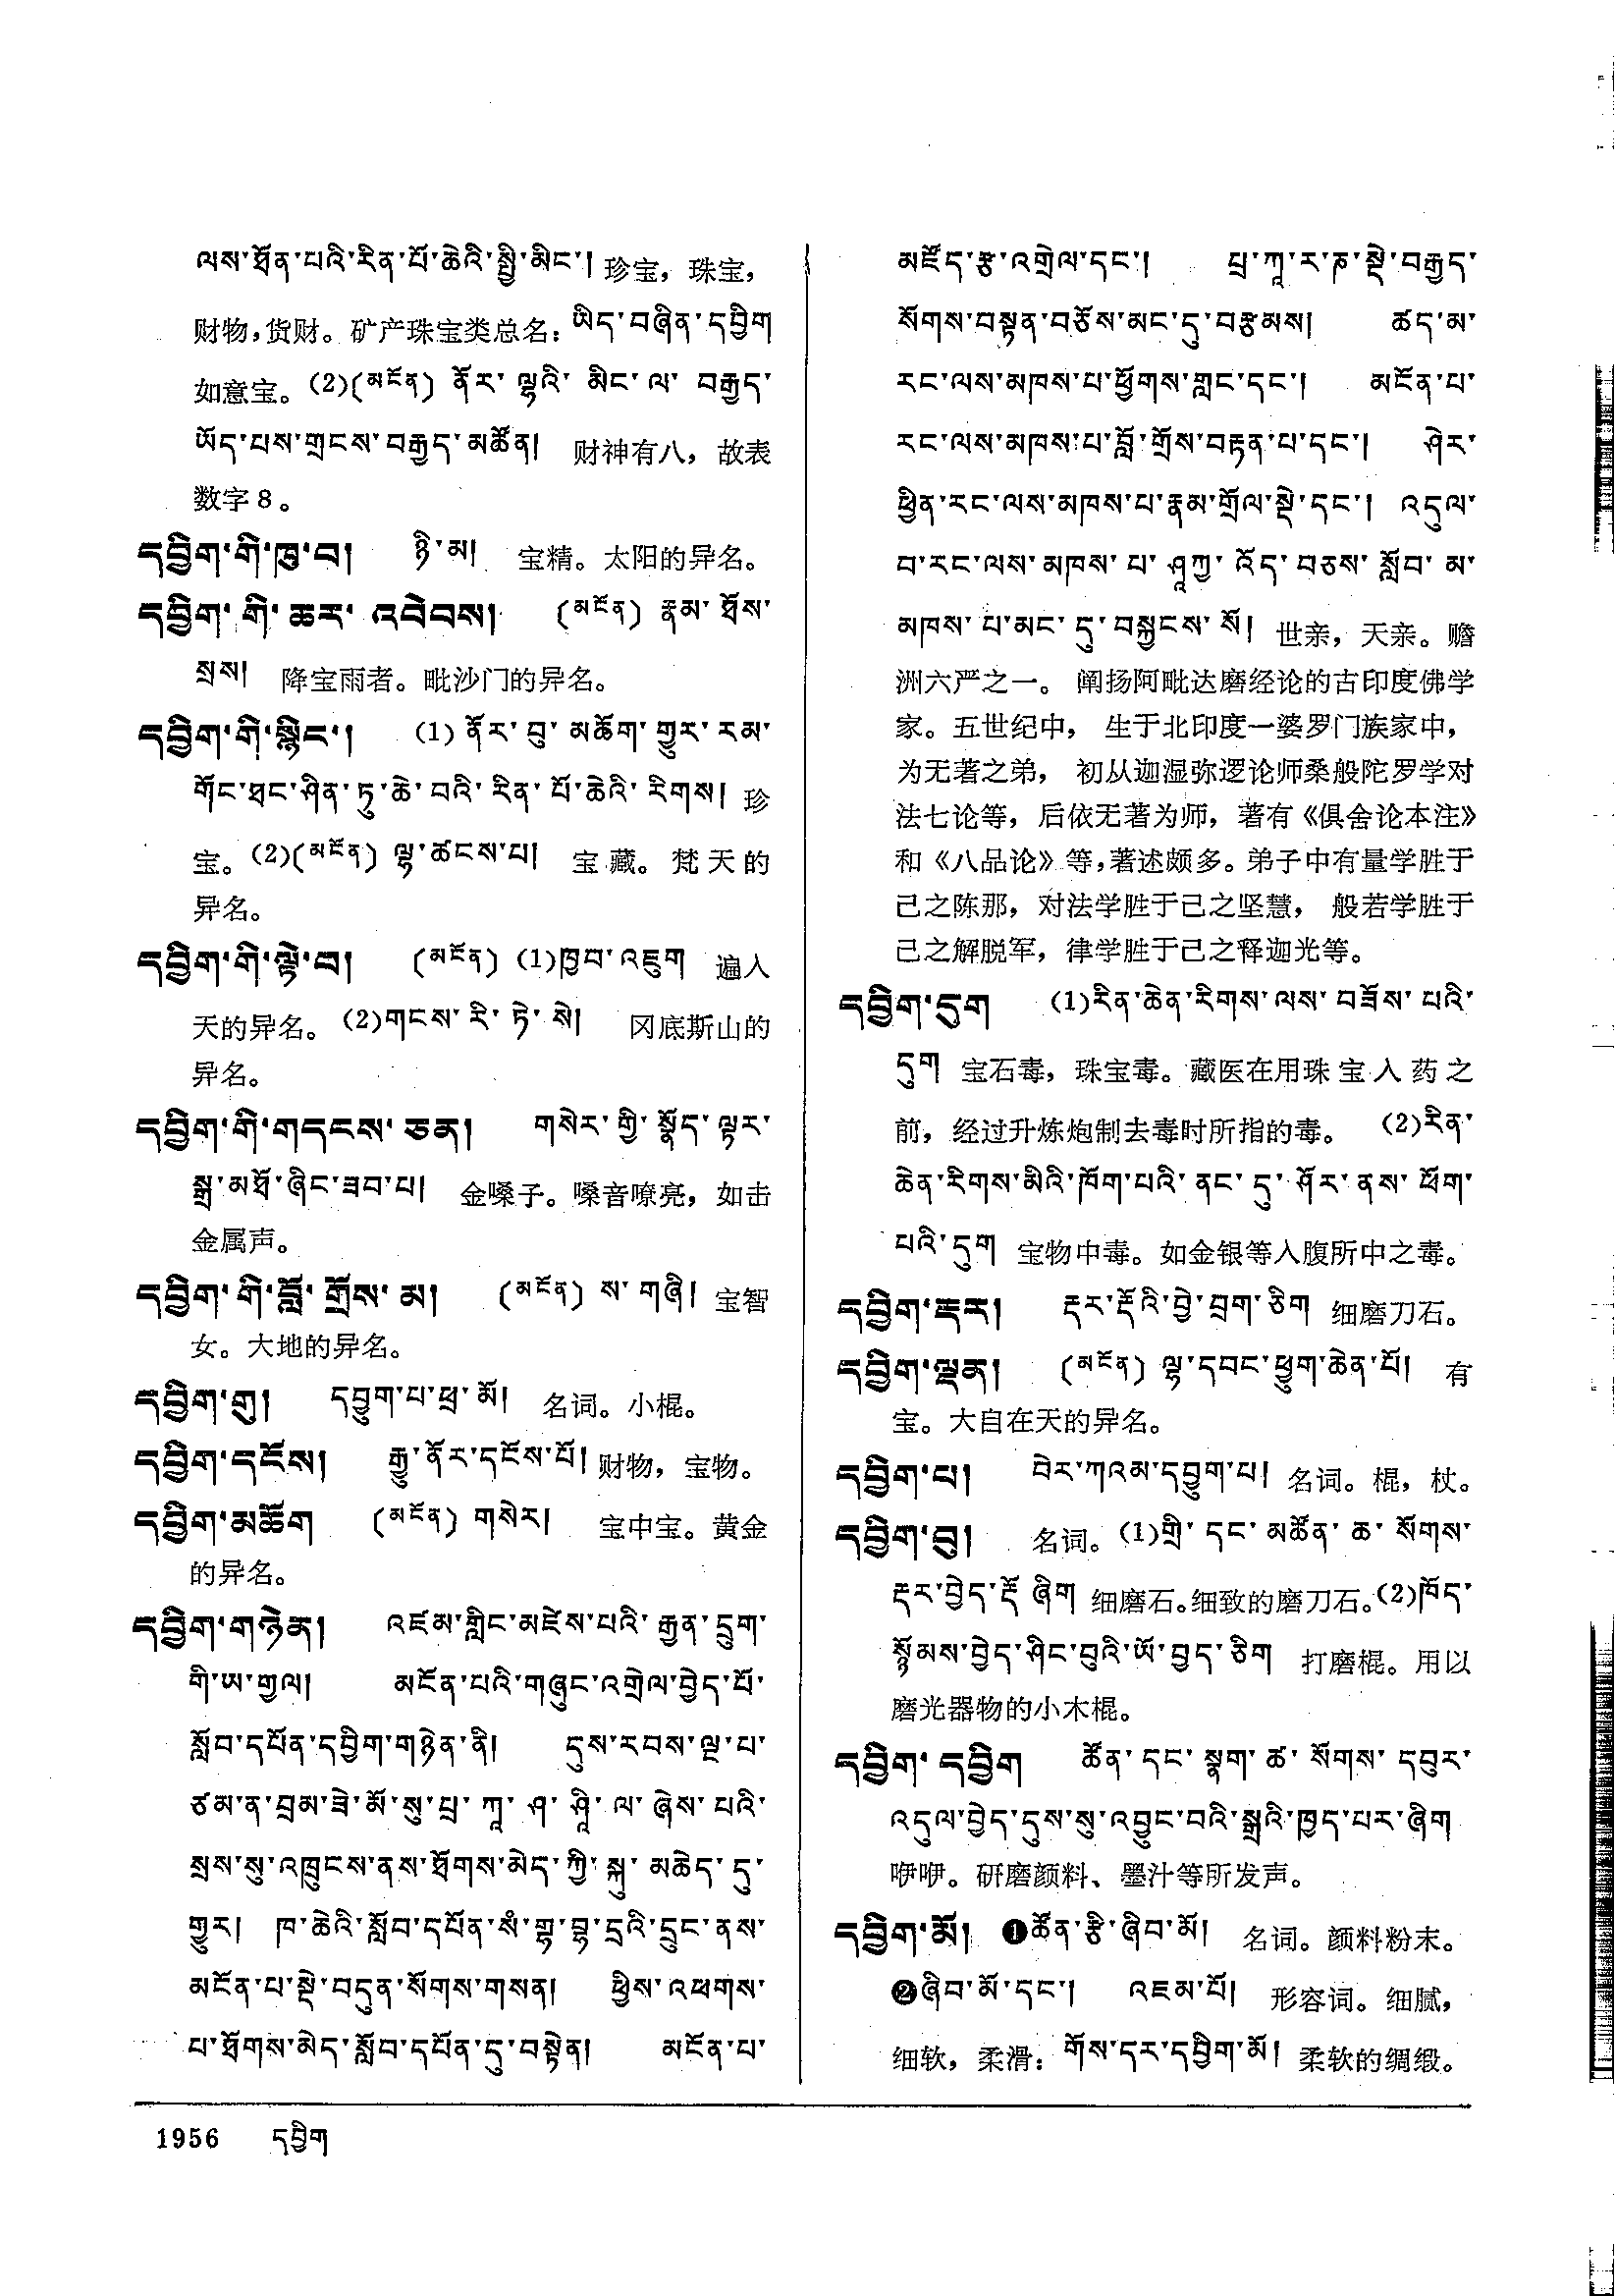 ལས་ཐོན་པའི་རིན་པོ་ཆེའི་སྤྱི་མིང་། 珍宝，珠宝，
财物，货财。矿产珠宝类总名：ཡིད་བཞིན་དབྱིག
如意宝。(2)(མངོན) ནོར་ལྷའི་མིང་ལ་བརྒྱད་
ཡོད་པས་གྲངས་བརྒྱད་མཚོན། 财神有八，故表
数字8。
དབྱིག་གི་ཁུ་བ། ཉི་མ། 宝精。太阳的异名。
དབྱིག་གི་ཆར་འབེབས། (མངོན) རྣམ་ཐོས་
སྲས། 降宝雨者。毗沙门的异名。
དབྱིག་གི་སྙིང་། (1) ནོར་བུ་མཆོག་གྱུར་རམ་
གོང་ཐང་ཤིན་ཏུ་ཆེ་བའི་རིན་པོ་ཆེའི་རིགས། 珍
宝。(2)(མངོན) ལྷ་ཚངས་པ། 宝藏。梵天的
异名。
དབྱིག་གི་ལྟེ་བ། (མངོན) (1)ཁྱབ་འཇུག 遍入
天的异名。(2)གངས་རི་ཏེ་སེ། 冈底斯山的
异名。
དབྱིག་གི་གདངས་ཅན། གསེར་གྱི་སྣོད་ལྟར་
སྒྲ་མཐོ་ཞིང་ཟབ་པ། 金嗓子。嗓音嘹亮，如击
金属声。
དབྱིག་གི་བློ་གྲོས་མ། (མངོན) ས་གཞི། 宝智
女。大地的异名。
དབྱིག་གུ། དབྱུག་པ་ཕྲ་མོ། 名词。小棍。
དབྱིག་དངོས། རྒྱུ་ནོར་དངོས་པོ། 财物，宝物。
དབྱིག་མཆོག (མངོན) གསེར། 宝中宝。黄金
的异名。
དབྱིག་གཉེན། འཛམ་གླིང་མཛེས་པའི་རྒྱན་དྲུག་
གི་ཡ་གྱལ། མངོན་པའི་གཞུང་འགྲེལ་བྱེད་པོ་
སློབ་དཔོན་དབྱིག་གཉེན་ནི། དུས་རབས་ལྔ་པ་
ཙམ་ན་བྲམ་ཟེ་མོ་སུ་པྲ་ཀཱ་ཤ་ཤཱི་ལ་ཞེས་པའི་
སྲས་སུ་འཁྲུངས་ནས་ཐོགས་མེད་ཀྱི་སྐུ་མཆེད་དུ་
གྱུར། ཁ་ཆེའི་སློབ་དཔོན་སཾ་གྷ་བྷ་དྲའི་དྲུང་ནས་
མངོན་པ་སྡེ་བདུན་སོགས་གསན། ཕྱིས་འཕགས་
པ་ཐོགས་མེད་སློབ་དཔོན་དུ་བསྟེན། མངོན་པ་
མཛོད་རྩ་འགྲེལ་དང་། པྲ་ཀཱ་ར་ཎ་སྡེ་བརྒྱད་
སོགས་བསྟན་བཅོས་མང་དུ་བརྩམས། ཚད་མ་
རང་ལས་མཁས་པ་ཕྱོགས་གླང་དང་། མངོན་པ་
རང་ལས་མཁས་པ་བློ་གྲོས་བརྟན་པ་དང་། ཤེར་
ཕྱིན་རང་ལས་མཁས་པ་རྣམ་གྲོལ་སྡེ་དང་། འདུལ་
བ་རང་ལས་མཁས་པ་ཤཱཀྱ་འོད་བཅས་སློབ་མ་
མཁས་པ་མང་དུ་བསྐྱངས་སོ། 世亲，天亲。赡
洲六严之一。阐扬阿毗达磨经论的古印度佛学
家。五世纪中，生于北印度一婆罗门族家中，
为无著之弟，初从迦湿弥逻论师桑般陀罗学对
法七论等，后依无著为师，著有《俱舍论本注》
和《八品论》等，著述颇多。弟子中有量学胜于
己之陈那，对法学胜于己之坚慧，般若学胜于
己之解脱军，律学胜于己之释迦光等。
དབྱིག་དུག (1)རིན་ཆེན་རིགས་ལས་བཟོས་པའི་
དུག 宝石毒，珠宝毒。藏医在用珠宝入药之
前，经过升炼炮制去毒时所指的毒。(2)རིན་
ཆེན་རིགས་མིའི་ཁོག་པའི་ནང་དུ་ཤོར་ནས་ཕོག་
པའི་དུག 宝物中毒。如金银等入腹所中之毒。
དབྱིག་རྡར། རྡར་རྡོའི་བྱེ་བྲག་ཅིག 细磨刀石。
དབྱིག་ལྡན། (མངོན) ལྷ་དབང་ཕྱུག་ཆེན་པོ། 有
宝。大自在天的异名。
དབྱིག་པ། བེར་ཀའམ་དབྱུག་པ། 名词。棍，杖。
དབྱིག་བུ། 名词。(1)གྲི་དང་མཚོན་ཆ་སོགས་
རྡར་བྱེད་རྡོ་ཞིག 细磨石。细致的磨刀石。(2)ཁོད་
སྙོམས་བྱེད་ཤིང་བུའི་ཡོ་བྱད་ཅིག 打磨棍。用以
磨光器物的小木棍。
དབྱིག་དབྱིག ཚོན་དང་སྣག་ཚ་སོགས་དབུར་
འདུལ་བྱེད་དུས་སུ་འབྱུང་བའི་སྒྲའི་ཁྱད་པར་ཞིག
咿咿。研磨颜料、墨汁等所发声。
དབྱིག་མོ། ❶ཚོན་རྩི་ཞིབ་མོ། 名词。颜料粉末。
❷ཞིབ་མོ་དང་། འཇམ་པོ། 形容词。细腻，
细软，柔滑：གོས་དར་དབྱིག་མོ། 柔软的绸缎。
1956 དབྱིག